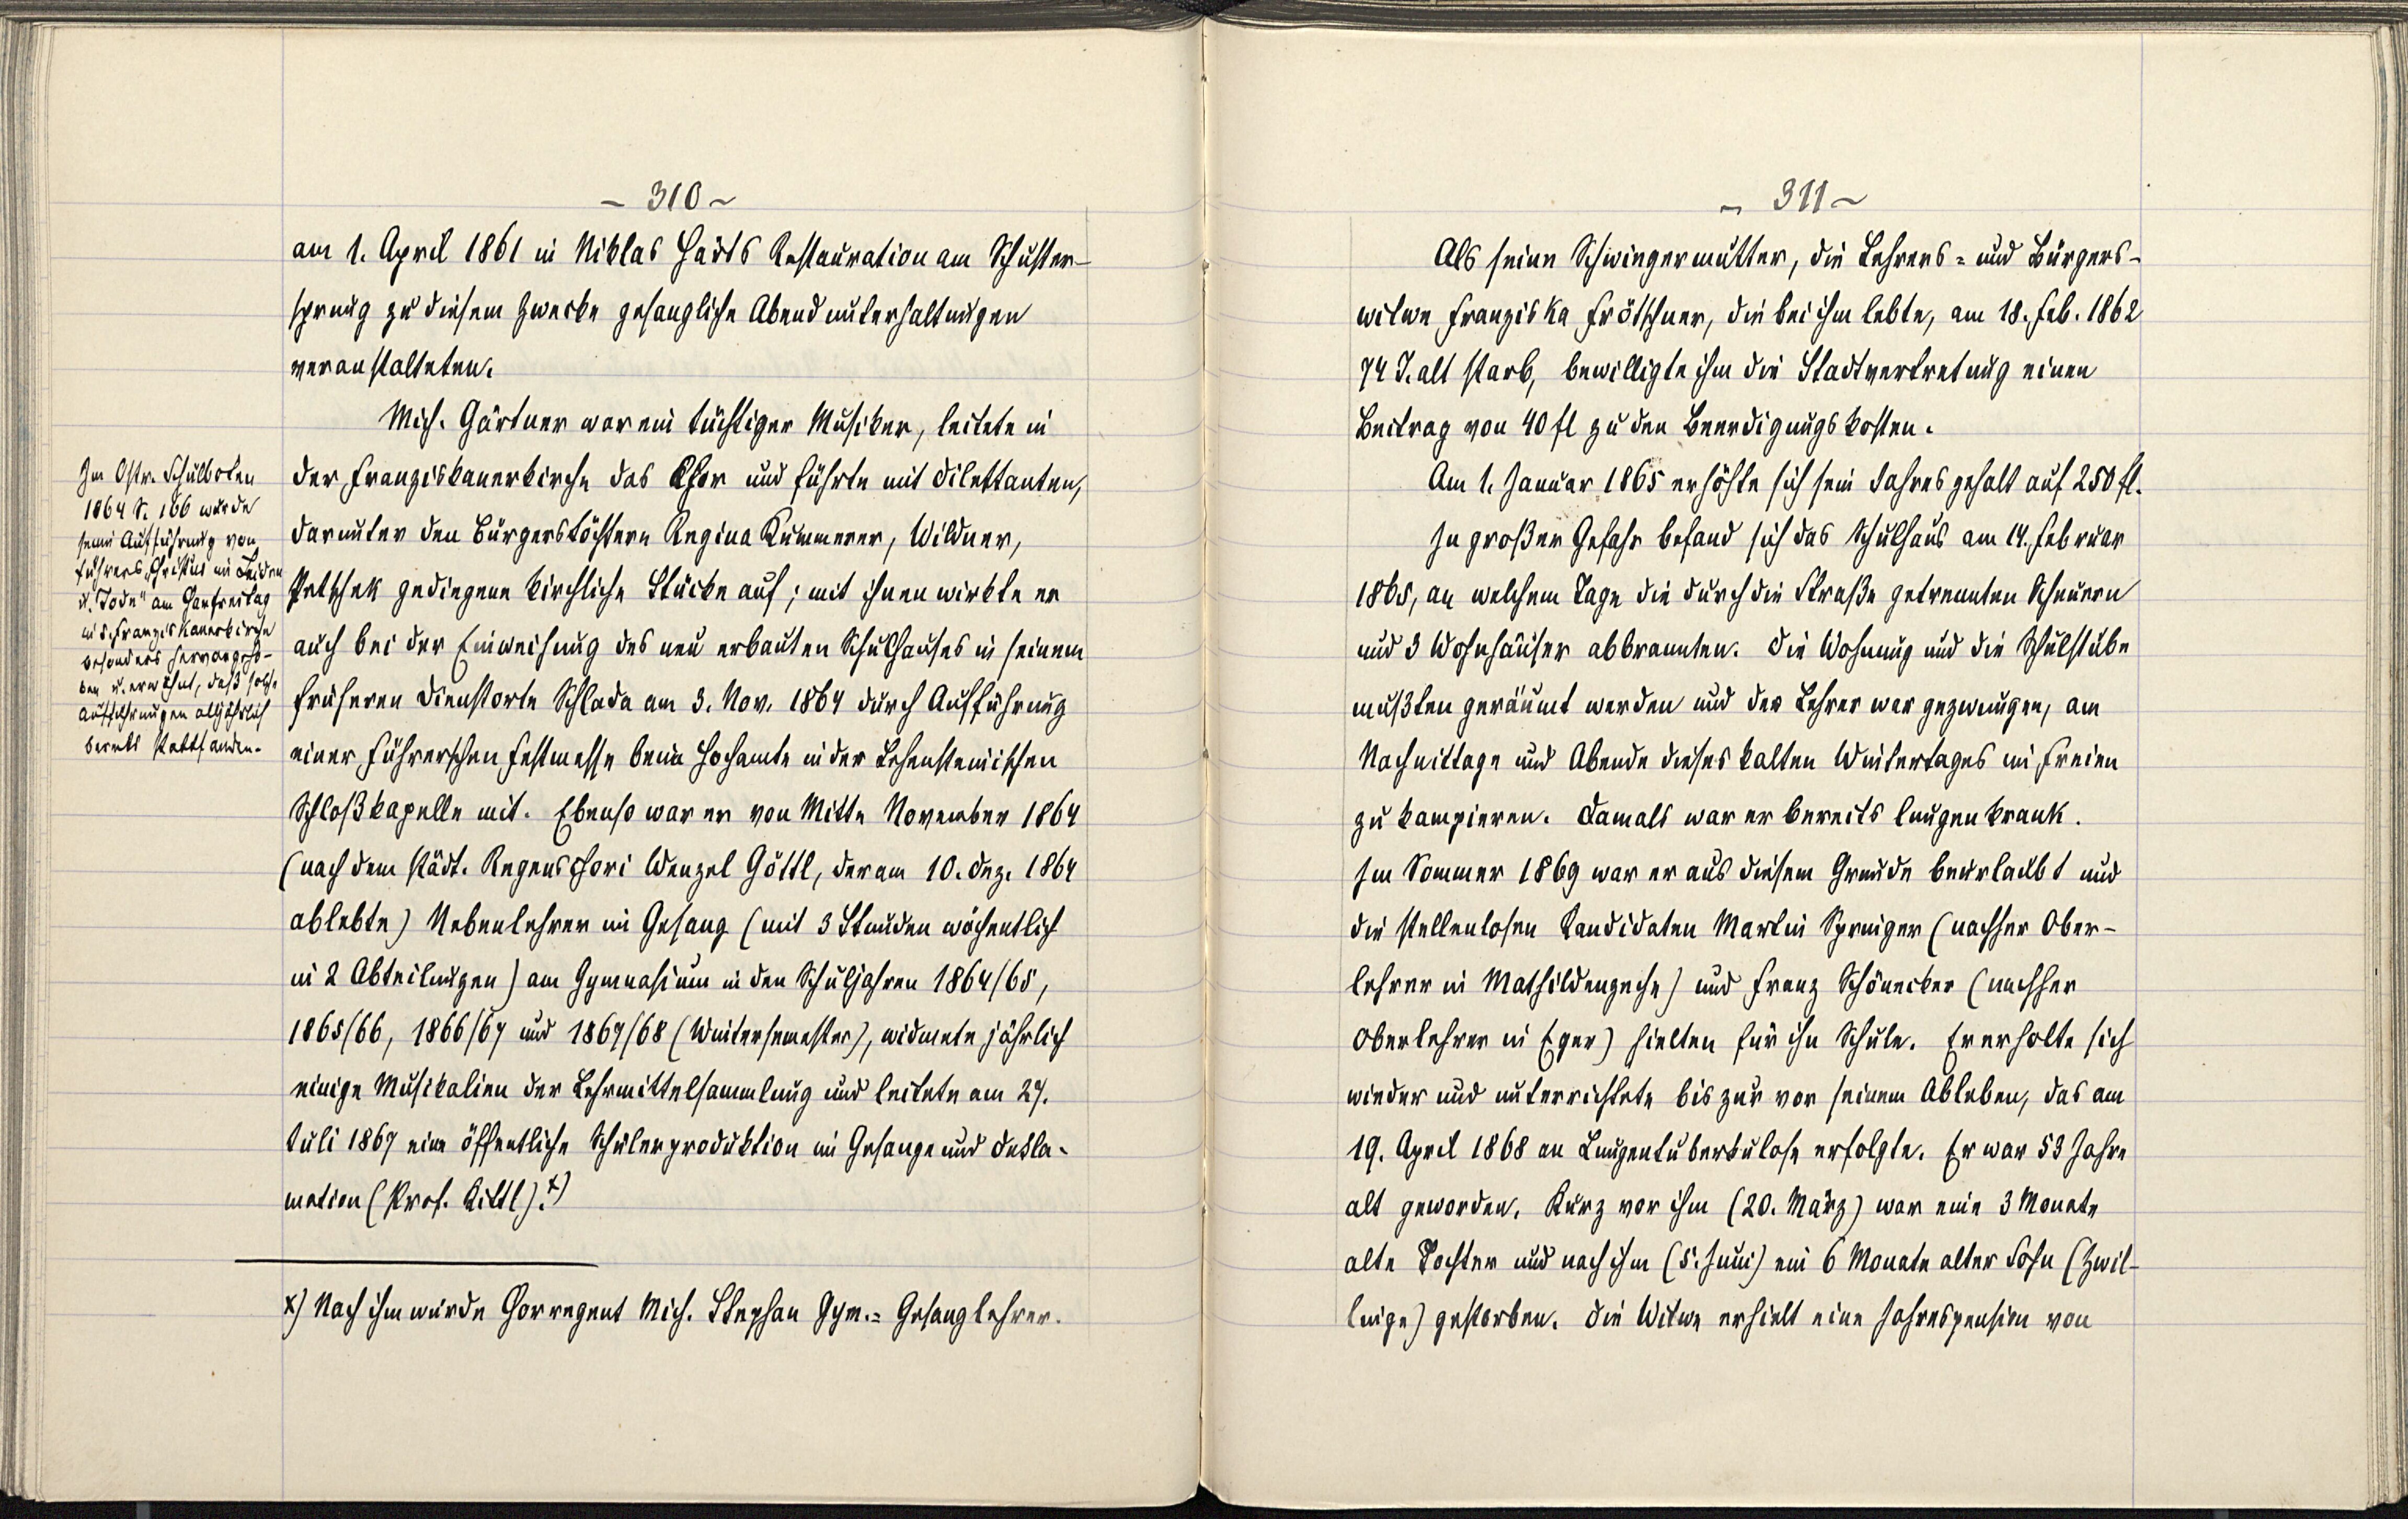 - 310 -
am 1. April 1861 in Niklas Hart's Restauration am Schuster-
sprung zu diesem Zwecke gesangliche Abendunterhaltungen
veranstalteten.
Mich. Gärtner war ein tüchtiger Musiker, leitete in
der Franziskanerkirche das Chor und führte mit Dilettanten,
darunter den Bürgerstöchtern Regina Kummerer, Wildner,
Petschek gediegene kirchliche Stücke auf; mit ihnen wirkte er
auch bei der Einweihung des neu erbauten Schulhauses in seinem
früheren Dienstorte Schlada am 3. Nov. 1864 durch Aufführung
einer Führerschen Festmesse beim Hochamte in der Lehensteinischen
Schloßkapelle mit. Ebenso war er von Mitte November 1864
(nach dem städt. Regenschori Wenzel Göttl, der am 10. Dez. 1864
ablebte) Nebenlehrer im Gesang (mit 3 Stunden wöchentlich
in 2 Abteilungen) am Gymnasium in den Schuljahren 1864/65,
1865/66, 1866/67 und 1867/68 (Wintersemester), widmete jährlich
einige Musikalien der Lehrmittelsammlung und leitete am 27.
Juli 1867 eine öffentliche Schülerproduktion im Gesange und Dekla-
mation (Prof. Kittl).x)
x) Nach ihm wurde Chorregent Mich. Stephan Gym.=Gesanglehrer.
Im Östr. Schulboten
1864 S. 166 wurde
seine Aufführung von
Führers "Christus im Leiden
u. Tode" am Karfreitag
in d. Franziskanerkirche
besonders hervorgeho-
ben u. erwähnt, daß solche
Aufführungen alljährlich
bereits stattfanden.
- 311 -
Als seine Schwiegermutter, die Lehrers= und Bürgers-
witwe Franziska Frötschner, die bei ihm lebte, am 18. Feb. 1862
74 J. alt starb, bewilligte ihm die Stadtvertretung einen
Beitrag von 40 fl zu den Beerdigungskosten.
Am 1. Januar 1865 erhöhte sich sein Jahresgehalt auf 250 fl.
In großer Gefahr befand sich das Schulhaus am 14. Februar
1865, an welchem Tage die durch die Straße getrennten Scheuern
und 3 Wohnhäuser abbrannten. Die Wohnung und die Schulstube
mußten geräumt werden und der Lehrer war gezwungen, am
Nachmittage und Abende dieses kalten Wintertages im Freien
zu kampieren. Damals war er bereits lungenkrank.
Im Sommer 1869 war er aus diesem Grunde beurlaubt und
die stellenlosen Kandidaten Martin Springer (nachher Ober-
lehrer in Mathildenzeche) und Franz Schönecker (nachher
Oberlehrer in Eger) hielten für ihn Schule. Er erholte sich
wieder und unterrichtete bis zur vor seinem Ableben, das am
19. April 1868 an Lungentuberkulose erfolgte. Er war 53 Jahre
alt geworden. Kurz vor ihm (20. März) war eine 3 Monate
alte Tochter und nach ihm (5. Juni) ein 6 Monate alter Sohn (Zwil-
linge) gestorben. Die Witwe erhielt eine Jahrespension von